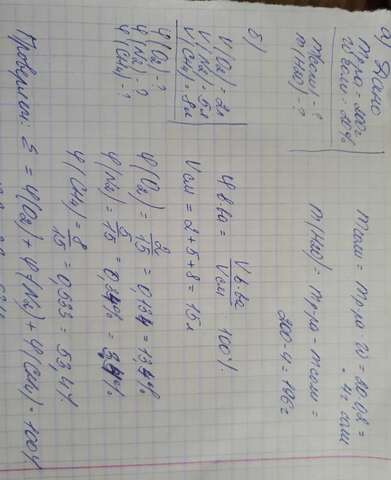 а) Дано
mр-ра = 200г
W соли = 20%
m(соли) - ?
m(H2O) - ?
mсоли = mр-ра · W = 20·0,2 =
= 4г соли
m(H2O) = mр-ра - mсоли =
200 - 4 = 196г
б)
V(O2) = 2л
V(N2) = 5л
V(CH4) = 8л
φ(O2) - ?
φ(N2) - ?
φ(CH4) - ?
φ в-ва = Vв-ва / Vсм 100%
Vсм = 2 + 5 + 8 = 15л
φ(O2) = 2/15 = 0,134 = 13,4%
φ(N2) = 5/15 =
φ(CH4) = 8/15 = 0,533 = 53,4%
Проверим: Σ = φ(O2) + φ(N2) + φ(CH4) = 100%